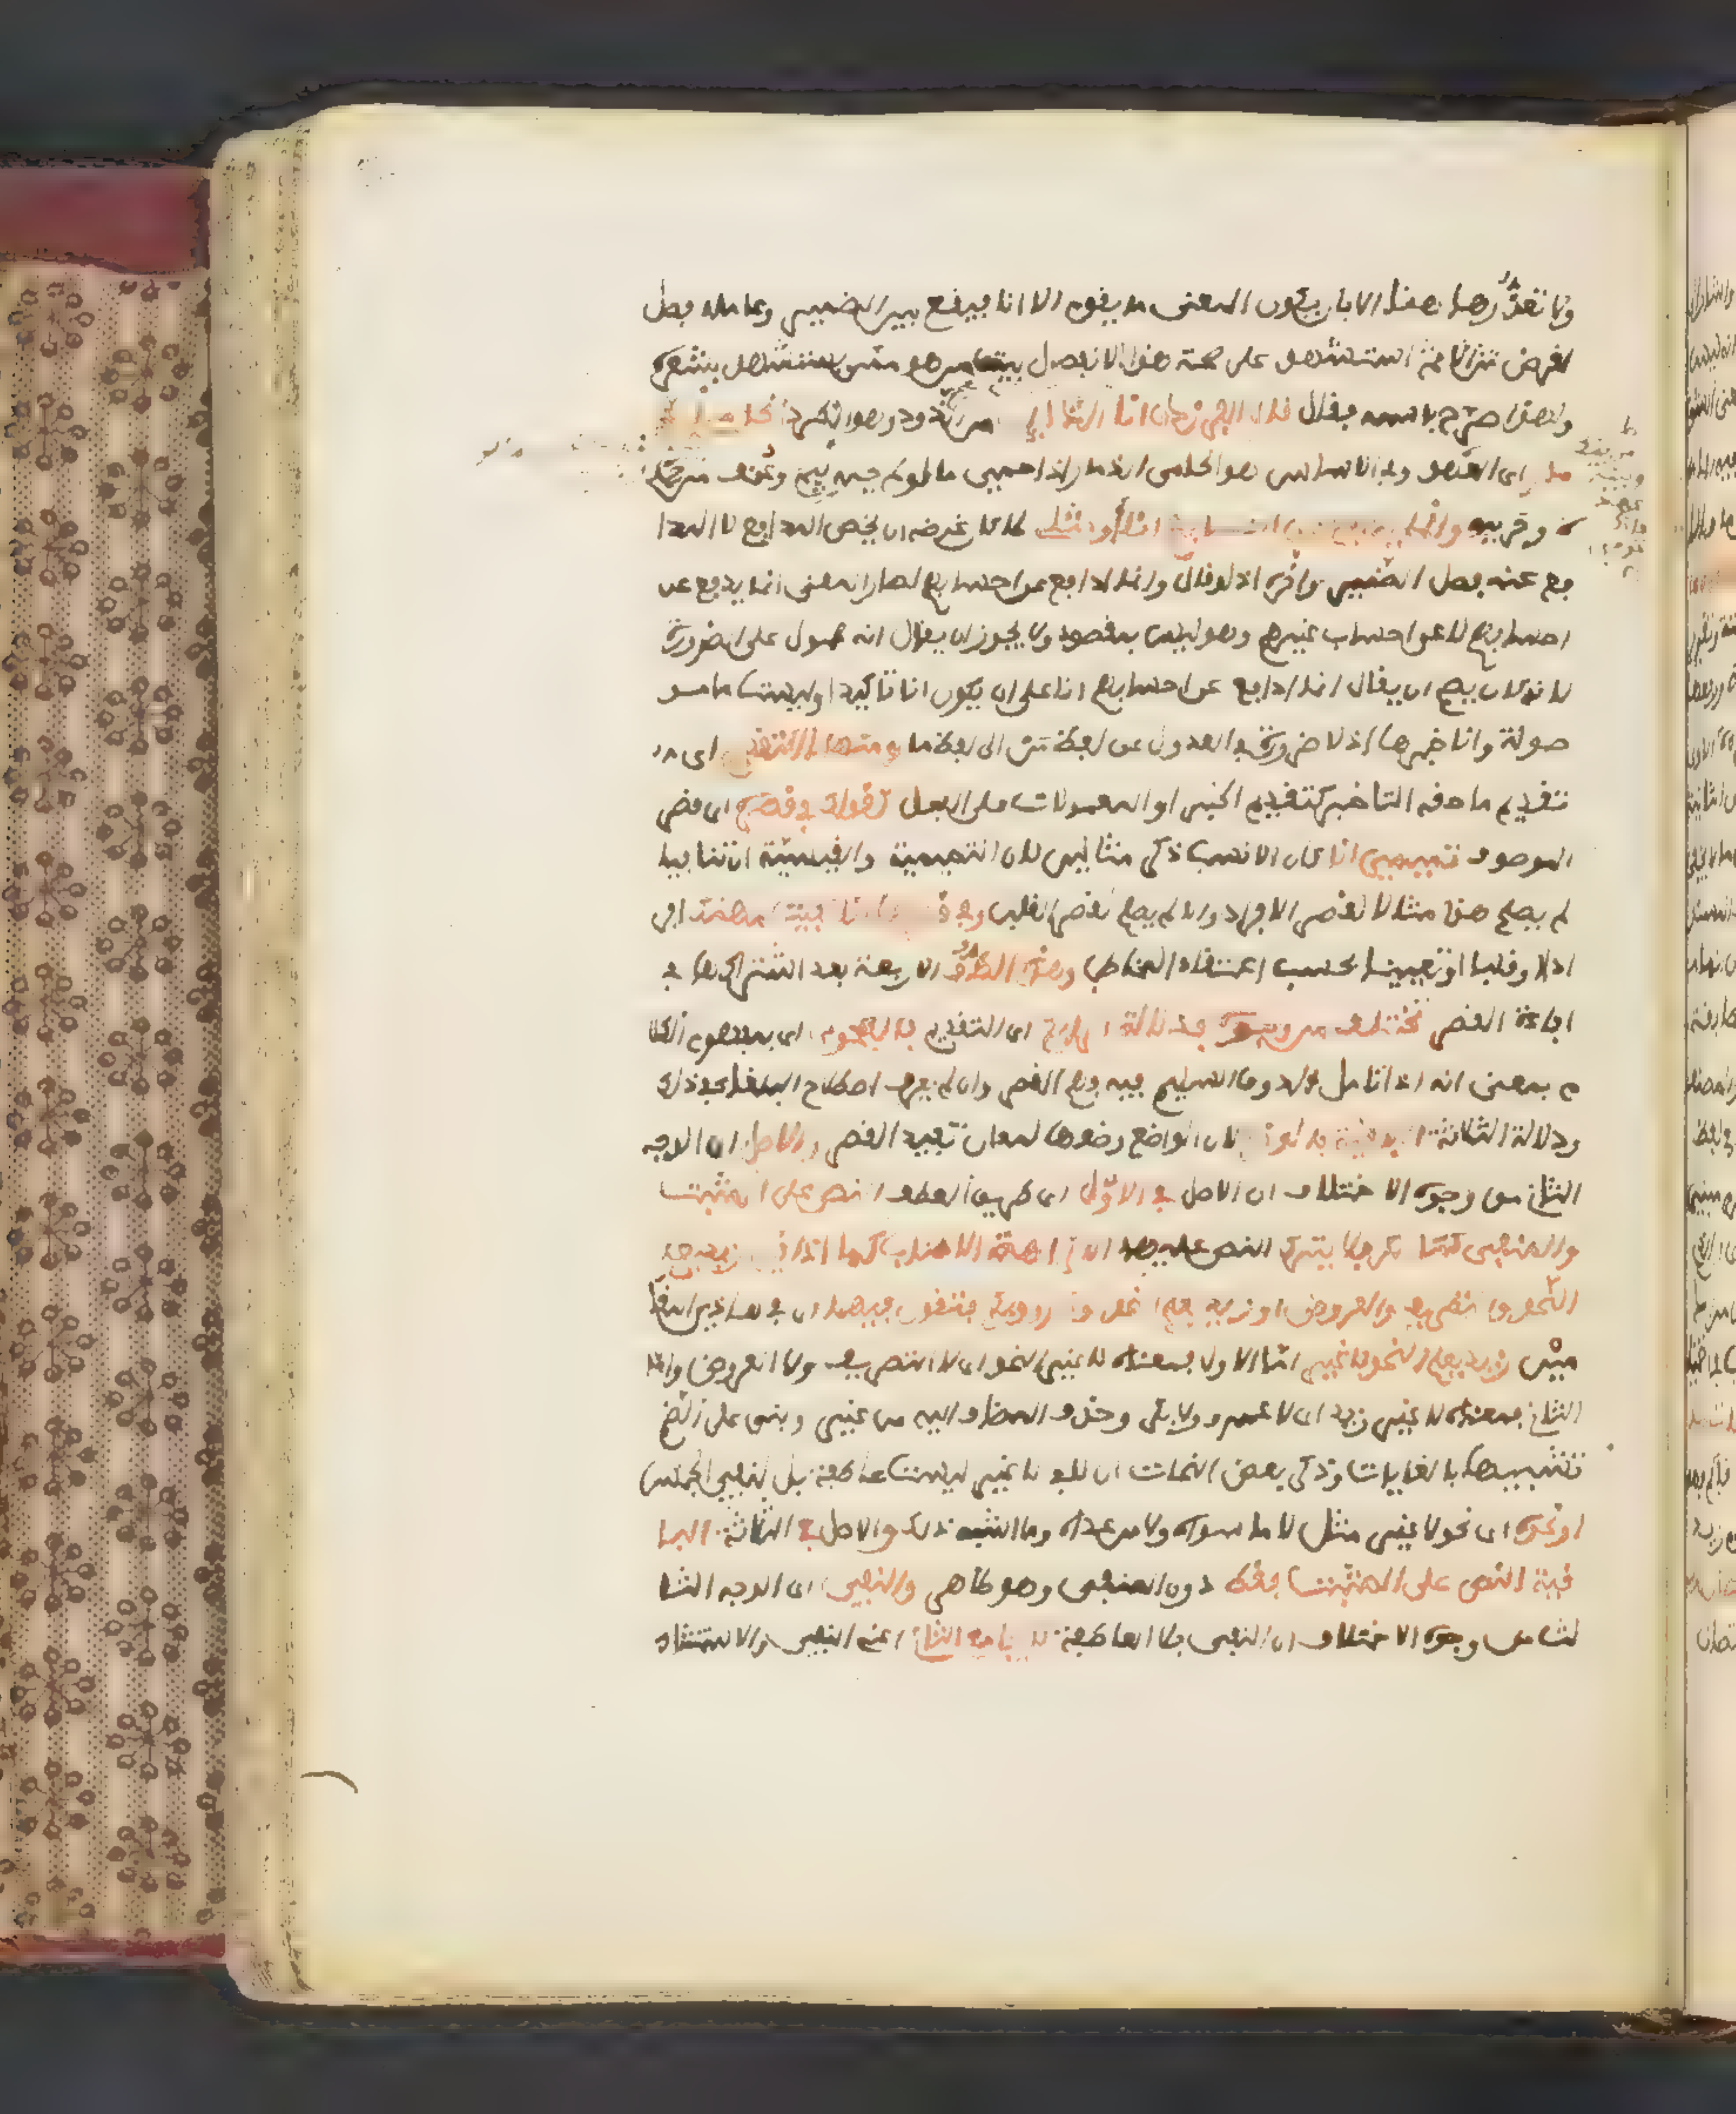 ولا تعذر هاهنا الا بان يكون المعنى ما يقوم الا انا فيقع بين الضمير وعامله فصل
لغرض ثم انه استشهد على صحة هذا الانفصال ببيت من هو ممن يستشهد بشعره
ولهذا صرح باسمه فقال قال الفرزدق انا الذائد من الذود وهو الطرد الحامي
الذمار اى العهد وفى الاساس هو الحامى الذمار اذا حمى ما لو لم يحمه ليم وعنف من حماه
وحريمه وانما يدافع عن احسابهم انا او مثلى لما كان غرضه ان يخص المدافع لا المدا
فع عنه فصل الضمير واخره اذ لو قال وانما ادافع عن احسابهم لصار المعنى انما يدفع عن
احسابهم لا عن احساب غيرهم وهو ليس بمقصود ولا يجوز ان يقال انه محمول على الضرورة
لانه كان يصح ان يقال انما ادافع عن احسابهم انا على ان يكون انا تاكيدا وليست ما مو
صولة وانا خبرها اذ لا ضرورة فى العدول عن لفظ من الى لفظ ما ومنها التقديم اى
تقديم ما حقه التاخير كتقديم الخبر او المعمولات على الفعل كقولك فى قصره اى قصر
الموصوف تميمى انا كان الانسب ذكر مثالين لان التميمية والقيسية ان تنافيا
لم يصلح هذا مثالا لقصر الافراد والا لم يصلح لقصر القلب وفى قصرها انا كفيت مهمك افر
ادا وقلبا او تعيينا بحسب اعتقاد المخاطب وهذه الطرق الاربعة بعد اشتراكها فى
افادة القصر تختلف من وجوه فدلالة الرابع اى التقديم بالفحوى اى بمفهوم الكلا
م بمعنى انه اذا تامل ذو الذوق السليم فيه فهم القصر وان لم يعرف اصطلاح البلغاء فى ذلك
ودلالة الثلاثة الباقية بالوضع لان الواضع وضعها لمعان تفيد القصر والاصل اى الوجه
الثانى من وجوه الاختلاف ان الاصل فى الاول اى طريق العطف النص على المثبت
والمنفى كما مر فلا يترك النص عليهما الا كراهة الاطناب كما اذا قيل زيد يعلم
النحو والتصريف والعروض او زيد يعلم النحو وعمرو وبكر فتقول فيهما اى فى هاذين المقا
مين زيد يعلم النحو لا غير اما الاول فمعناه لا غير النحو اى لا التصريف ولا العروض واما
الثانى فمعناه لا غير زيد اى لا عمرو ولا بكر وحذف المضاف اليه من غير وبنى على الضم
تشبيها بالغايات وذكر بعض النحات ان لا فى لا غير ليست عاطفة بل لنفى الجنس
او نحوه اى نحو لا غير مثل لا ما سواه ولا من عداه وما اشبه ذلك والاصل فى الثلاثة البا
قية النص على المثبت فقط دون المنفى وهو ظاهر والنفى اى الوجه الثا
لث من وجوه الاختلاف ان النفى بلا العاطفة لا يجامع الثانى اعنى النفى والاستثناء